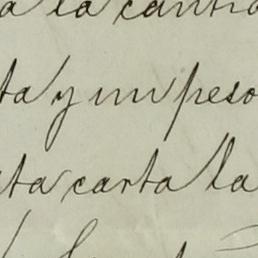 a la cantid
ta y un peso
sta carta la